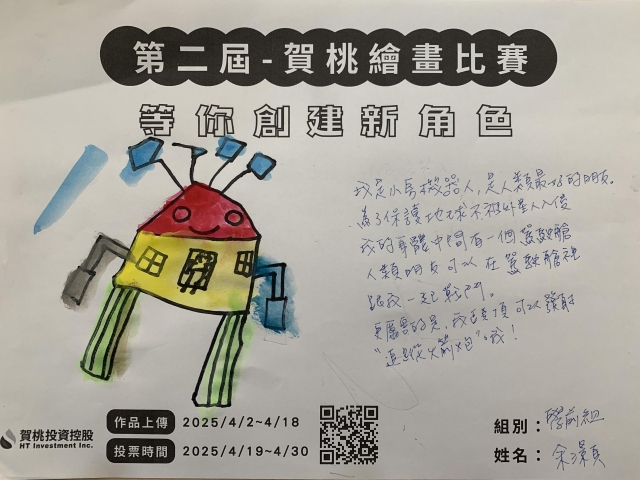 第二屆-賀桃繪畫比賽
等你創建新角色
我是小房機器人,是人類最好的朋友。
為了保護地球不被外星人入侵
我的身體中間有一個駕駛艙
人類朋友可以在駕駛艙裡
跟我一起戰鬥。
更厲害的是,我頭頂可以發射
"追蹤火箭炮"哦!
賀桃投資控股
HT Investment Inc.
作品上傳 2025/4/2~4/18
投票時間 2025/4/19~4/30
組別:學前組
姓名:余灝